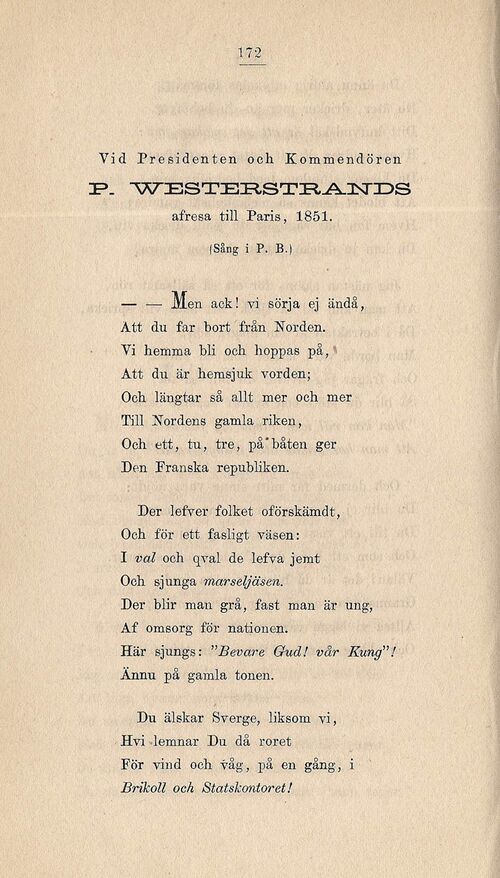 172
Vid Presidenten och Kommendören
P. WESTERSTRANDS
afresa till Paris, 1851.
(Sång i P. B.)
— — Men ack! vi sörja ej ändå,
Att du far bort från Norden.
Vi hemma bli och hoppas på,
Att du är hemsjuk vorden;
Och längtar så allt mer och mer
Till Nordens gamla riken,
Och ett, tu, tre, på båten ger
Den Franska republiken.
Der lefver folket oförskämdt,
Och för ett fasligt väsen:
I val och qval de lefva jemt
Och sjunga marseljäsen.
Der blir man grå, fast man är ung,
Af omsorg för nationen.
Här sjungs: ”Bevare Gud! vår Kung”!
Ännu på gamla tonen.
Du älskar Sverge, liksom vi,
Hvi lemnar Du då roret
För vind och våg, på en gång, i
Brikoll och Statskontoret!